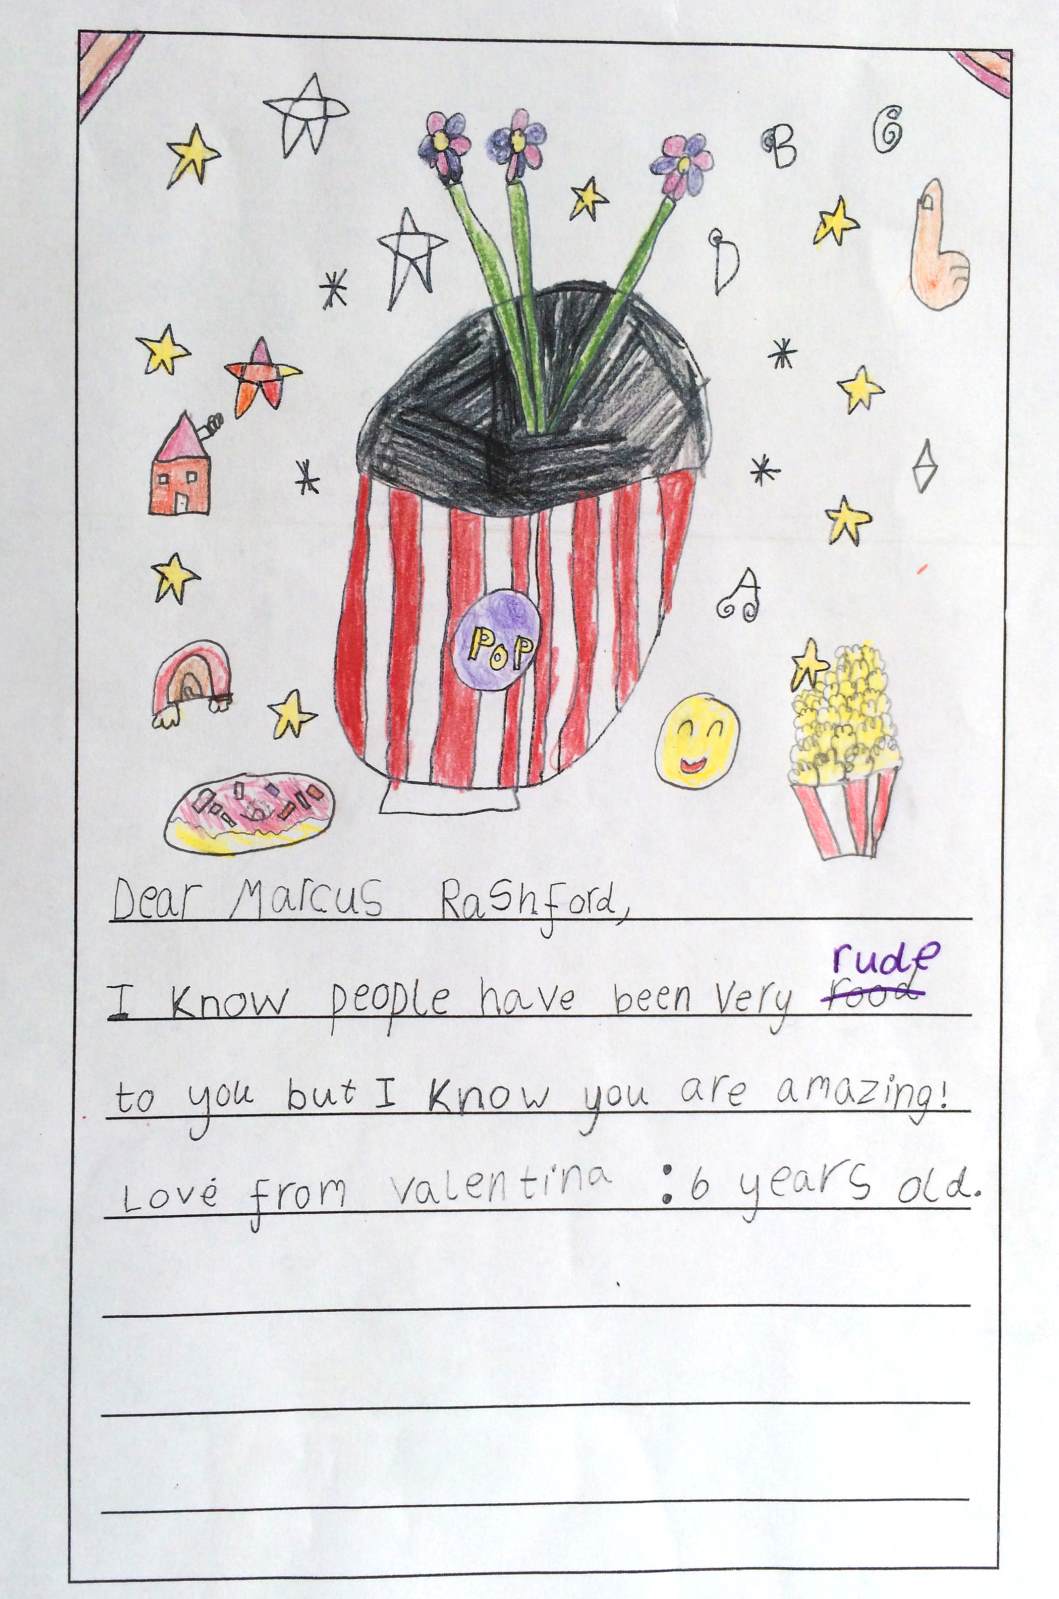 B
G
D
A
POP
Dear Marcus Rashford,
rude
I know people have been very rood
to you but I know you are amazing!
Love from Valentina : 6 years old.